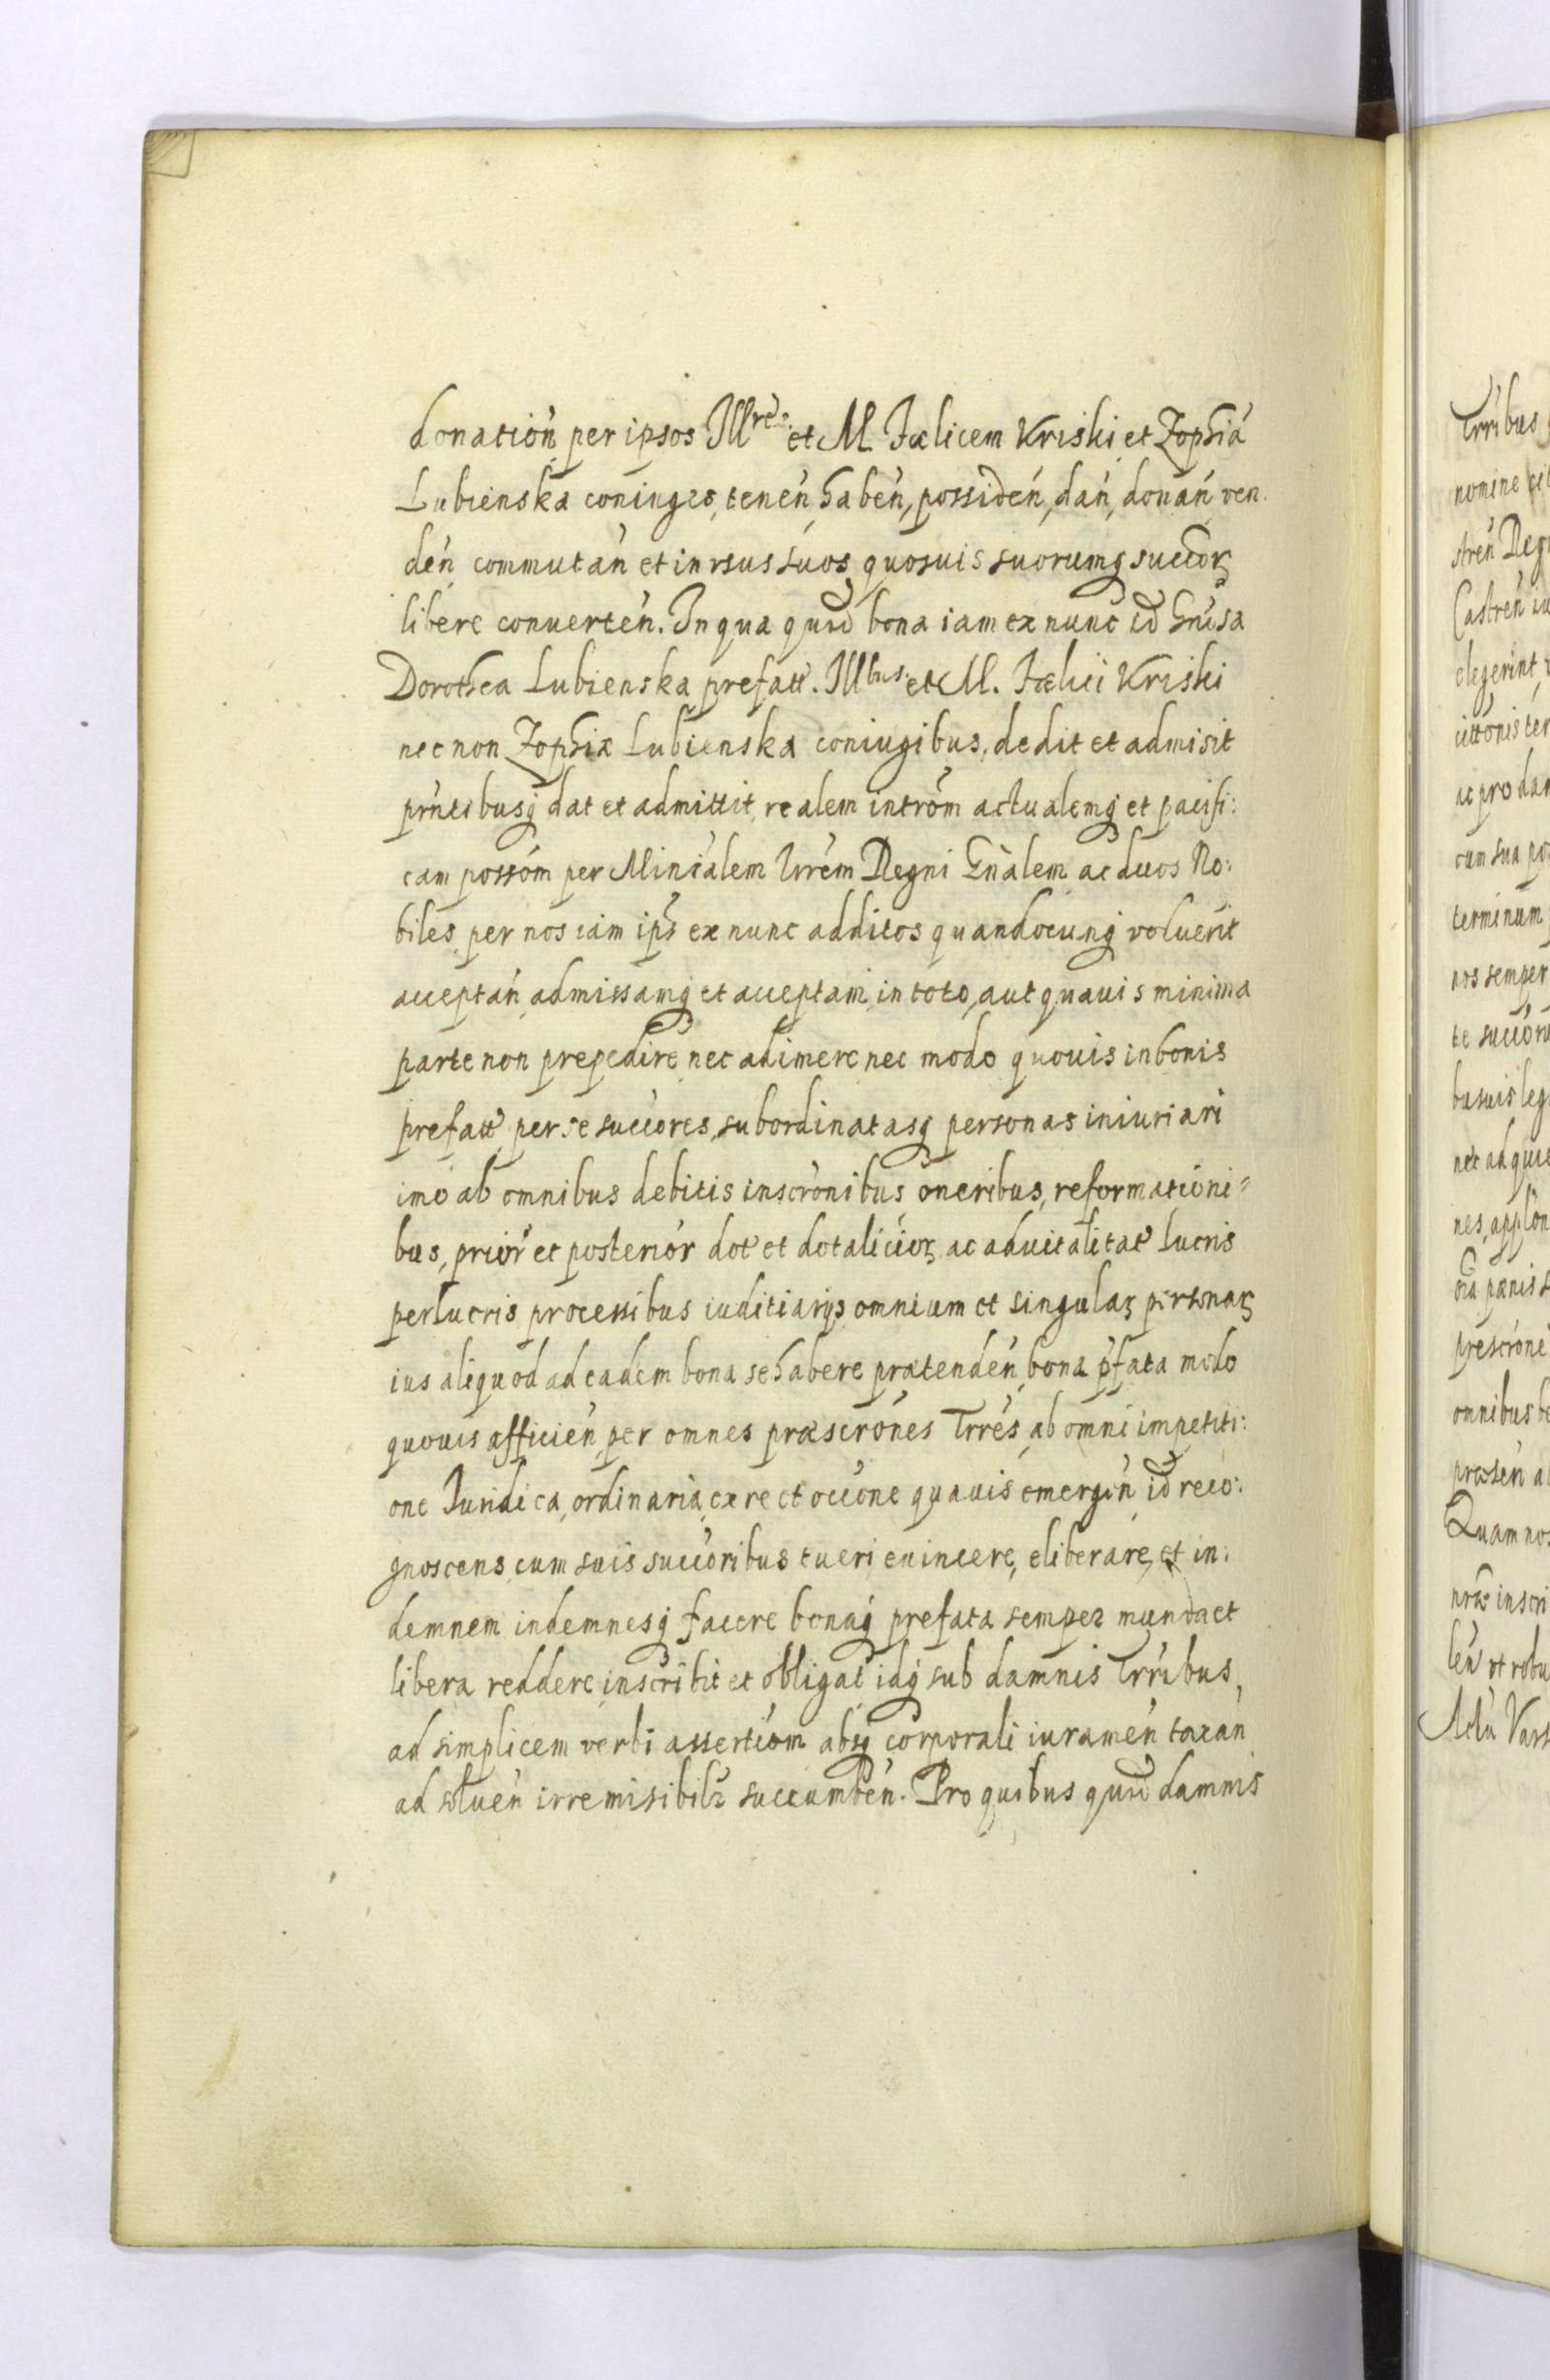 donation̄ per ipsos Illres et M Fælicem Kriski et Zophiā
Lubienska coniuges, tenen̄, haben̄, possiden̄, dan̄, donan̄, ven
den̄ commutan̄ et in vsus suos quosuis suorumq succoꝝ
libere conuerten̄. In qua quid̄ bona iam ex nunc id Gn̄sa
Dorothea Lubienska prefatt. Illbus et M. Fælici Kriski
nec non Zophiæ Lubienska coniugibus, dedit et admisit
pn̄tibusq dat et admittit, realem introm̄ actualemq et pacifi:
cam possom̄ per Minrālem Trrēm Regni Gnālem ac duos No:
biles per nos iam ips̄ ex nunc additos quandocunq voluerit
acceptan̄, admissamq et acceptam in toto, aut quauis minima
parte non prepedire nec adimere nec modo quouis in bonis
prefatt per se succores, subordinatasq personas iniuriari
imo ab omnibus debitis inscrōnibus, oneribus, reformationi=
bus, prior̄ et posterior̄ dot̄ et dotalicioꝝ ac aduitalitat̄ lucris
perlucris processibus iuditiarijs omnium et singulaꝝ personaꝝ
ius aliquod ad eadem bona se habere prætenden̄ bona p̄fata modo
quouis afficien̄ per omnes præscrōnes Trrēs ab omni impetiti:
one Iuridica, ordinaria, ex re et occōne quauis emergen̄ id reco:
gnoscens cum suis succoribus tueri euincere, eliberare, et in:
demnem indemnesq facere bonaq prefata semper munda et
libera reddere, inscribit et obligat idq sub damnis Trribus,
ad simplicem verbi assertiom̄ absq corporali iuramen̄ taxan̄
ad soluen̄ irremisibilr̄ succumben̄. Pro quibus quid̄ damnis